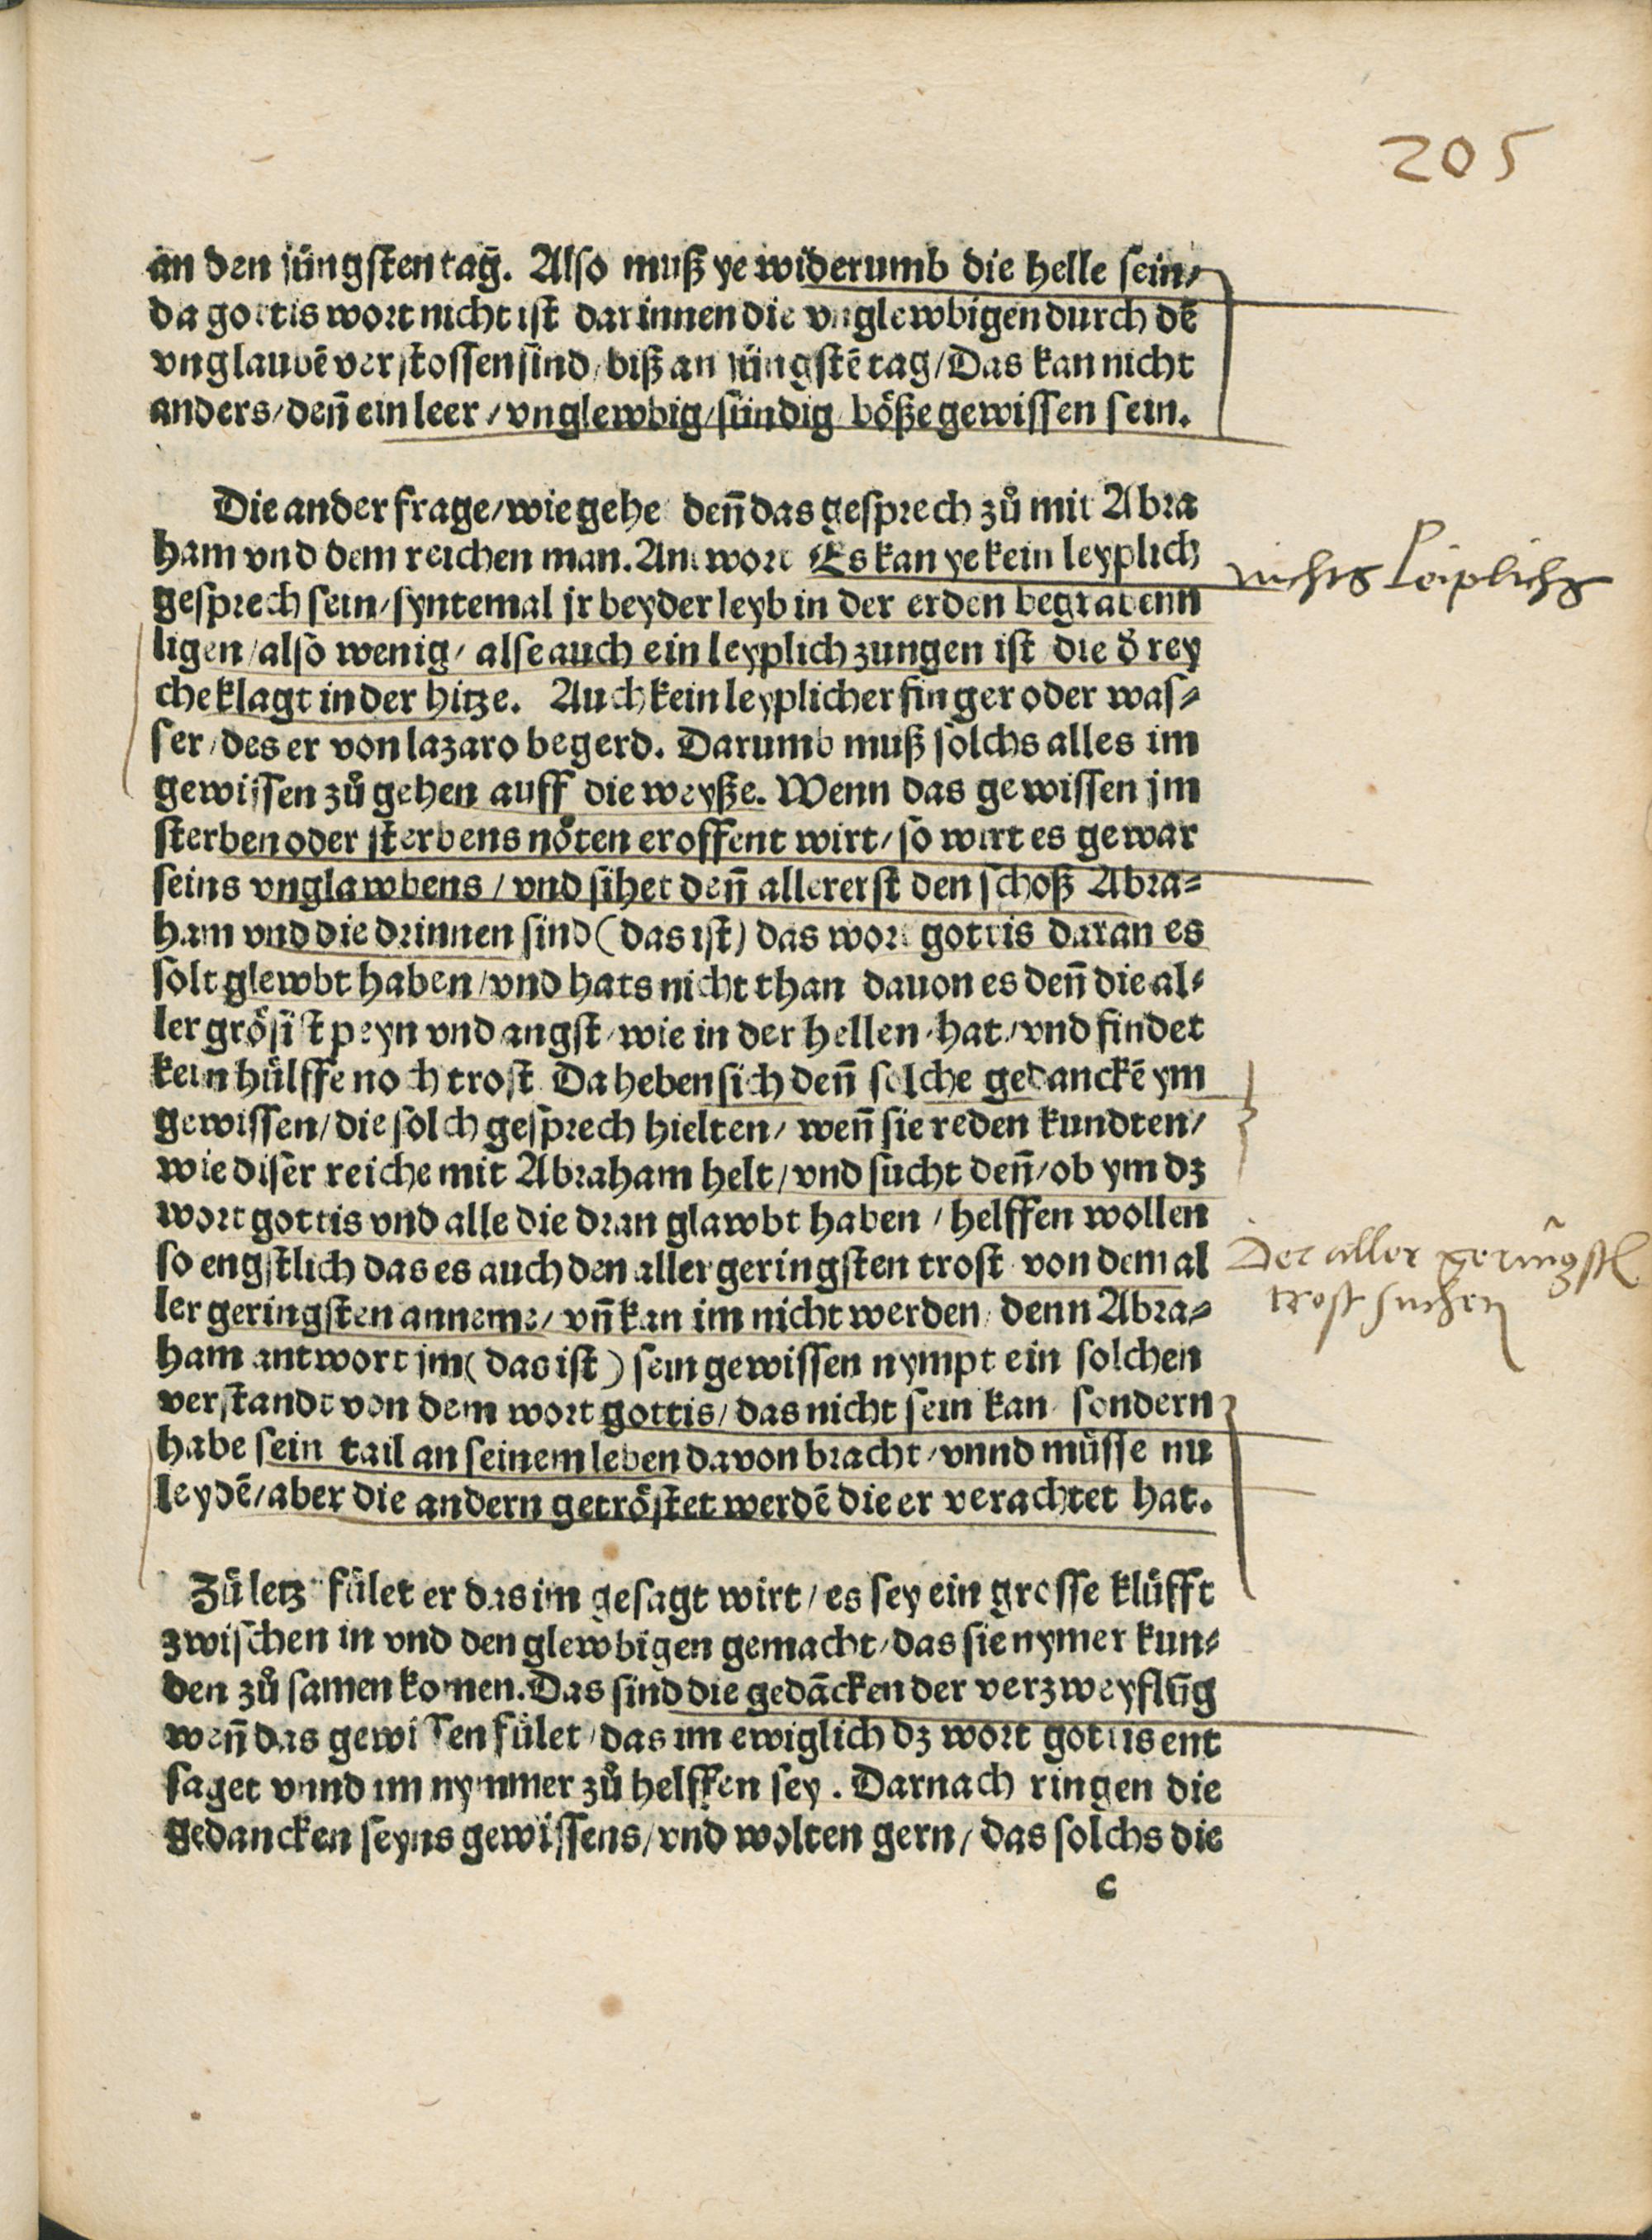 205
an den jüngsten tag. Also muß ye widerumb die helle sein/
da gottis wort nicht ist darinnen die vnglewbigen durch dē
vnglaubē verstossen sind/ biß an jüngstē tag/ Das kan nicht
anders/ deñ ein leer/ vnglewbig/ sündig böße gewissen sein.
Die ander frage/ wie gehet deñ das gesprech zů mit Abra
ham vnd dem reichen man. Antwort Es kan ye kein leyplich
nichts Leiplichs
gesprech sein/ syntemal jr beyder leyb in der erden begrabenn
ligen/ also wenig/ alse auch ein leyplich zungen ist die d̄ rey
che klagt in der hitze. Auch kein leyplicher finger oder was⸗
ser/ des er von lazaro begerd. Darumb muß solchs alles im
gewissen zů gehen auff die weyße. Wenn das gewissen jm
sterben oder sterbens nöten eroffent wirt/ so wirt es gewar
seins vnglawbens/ vnd sihet deñ allererst den schoß Abra⸗
ham vnd die drinnen sind (das ist) das wort gottis daran es
solt glewbt haben/ vnd hats nicht than dauon es deñ die al⸗
ler grösist peyn vnd angst/ wie in der hellen/ hat/ vnd findet
kein hülffe noch trost Da heben sich deñ solche gedanckē ym
gewissen/ die solch gesprech hielten/ weñ sie reden kundten/
wie diser reiche mit Abraham helt/ vnd sucht deñ/ ob ym dz
wort gottis vnd alle die dran glawbt haben/ helffen wollen
so engstlich das es auch den aller geringsten trost von dem al
Der aller geringst
trost suchen
ler geringsten anneme/ vñ kan im nicht werden/ denn Abra⸗
ham antwort jm (das ist) sein gewissen nympt ein solchen
verstandt von dem wort gottis/ das nicht sein kan sondern
habe sein tail an seinem leben davon bracht/ vnnd müsse nu
leydē/ aber die andern getröstet werdē die er verachtet hat.
Zů letz fület er das im gesagt wirt/ es sey ein grosse klüfft
zwischen in vnd den glewbigen gemacht/ das sie nymer kun⸗
den zů samen komen. Das sind die gedācken der verzweyflūg
weñ das gewissen fület/ das im ewiglich dz wort gottis ent
saget vnnd im nymmer zů helffen sey. Darnach ringen die
gedancken seyns gewissens/ vnd wolten gern/ das solchs die
c